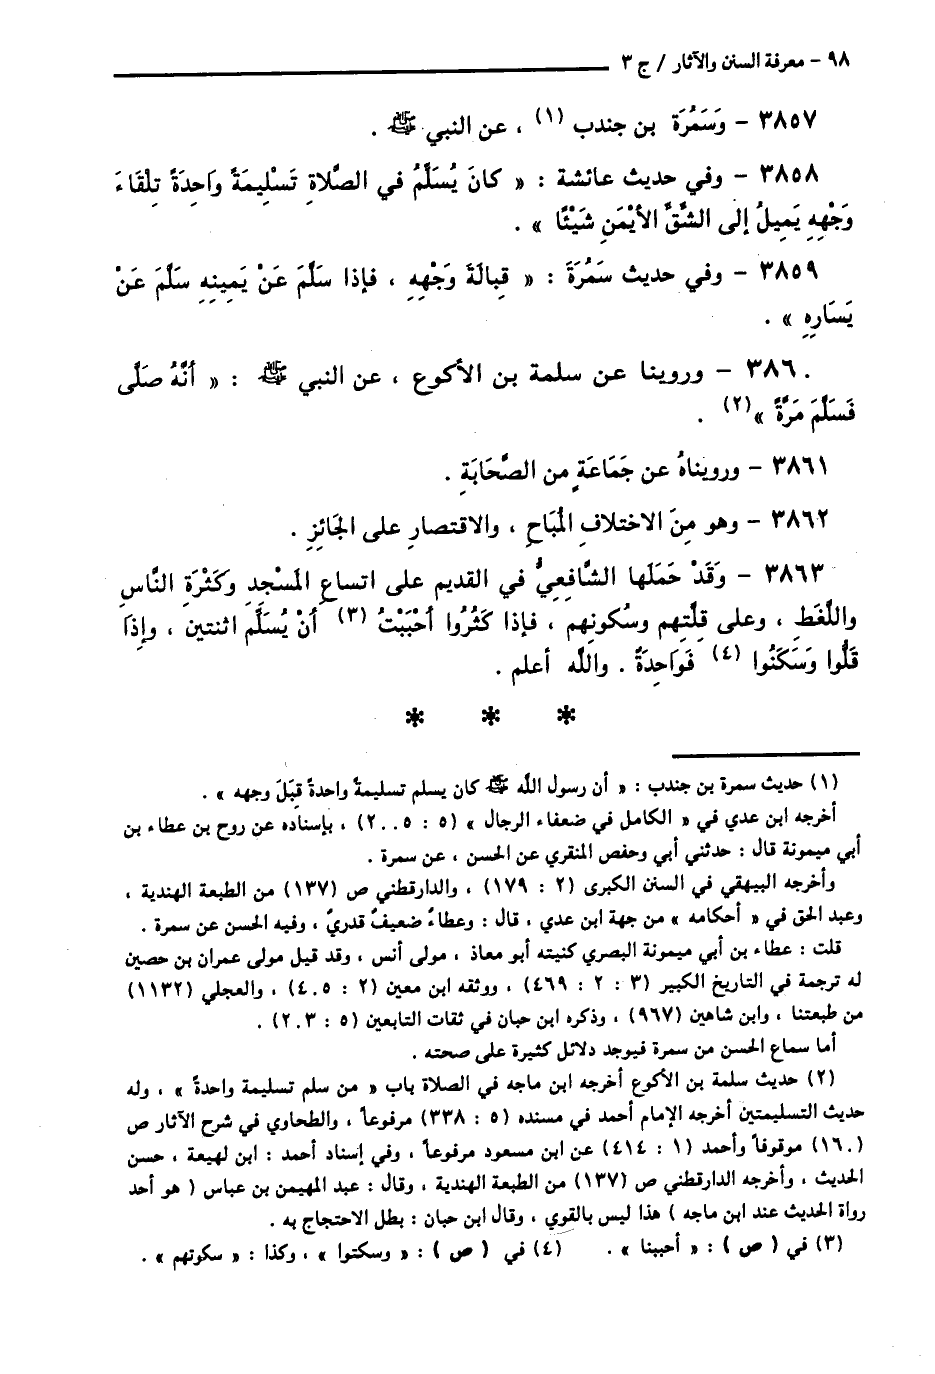 ٩٨ – معرفة السنن والآثار / ج ٣
٣٨٥٧ – وَسَمُرَة بن جندب (١) ، عن النبي ﷺ .
٣٨٥٨ – وفي حديث عائشة : « كانَ يُسَلِّمُ في الصَّلاةِ تَسْلِيمَةً واحِدَةً تِلْقَاءَ
وَجْهِهِ يَمِيلُ إلى الشِّقِّ الأَيْمَنِ شَيْئًا » .
٣٨٥٩ – وفي حديث سَمُرَةَ : « قِبالَةَ وَجْهِهِ ، فإذا سَلَّمَ عَنْ يَمِينِهِ سَلَّمَ عَنْ
يَسَارِهِ » .
٣٨٦٠ – وروينا عن سلمة بن الأكوع ، عن النبي ﷺ : « أنَّهُ صَلَّى
فَسَلَّمَ مَرَّةً »(٢) .
٣٨٦١ – ورويناهُ عن جَمَاعَةٍ من الصَّحَابَةِ .
٣٨٦٢ – وهو مِنَ الاختلافِ المُبَاحِ ، والاقتصارِ على الجَائِزِ .
٣٨٦٣ – وَقَدْ حَمَلَها الشَّافِعِيُّ في القديم على اتساعِ المَسْجِدِ وكَثْرَةِ النَّاسِ
واللَّغَطِ ، وعلى قِلَّتِهم وسُكونِهم ، فإذا كَثُرُوا أَحْبَبْتُ (٣) أنْ يُسَلِّمَ اثنتين ، وإِذَا
قَلُّوا وَسَكَنُوا (٤) فَوَاحِدَةً . واللَّه أعلم .
* * *
(١) حديث سمرة بن جندب : « أن رسول اللَّه ﷺ كان يسلم تسليمةً واحدةً قِبَلَ وجهه » .
أخرجه ابن عدي في « الكامل في ضعفاء الرجال » (٥ : ٢٠٠٥) ، بإسناده عن روح بن عطاء بن
أبي ميمونة قال : حدثني أبي وحفص المنقري عن الحسن ، عن سمرة .
وأخرجه البيهقي في السنن الكبرى (٢ : ١٧٩) ، والدارقطني ص (١٣٧) من الطبعة الهندية ،
وعبد الحق في « أحكامه » من جهة ابن عدي ، قال : وعطاءٌ ضعيفٌ قدريٌ ، وفيه الحسن عن سمرة .
قلت : عطاء بن أبي ميمونة البصري كنيته أبو معاذ ، مولى أنس ، وقد قيل مولى عمران بن حصين
له ترجمة في التاريخ الكبير (٣ : ٢ : ٤٦٩) ، ووثقه ابن معين (٢ : ٤٠٥) ، والعجلي (١١٣٢)
من طبعتنا ، وابن شاهين (٩٦٧) ، وذكره ابن حبان في ثقات التابعين (٥ : ٢٠٣) .
أما سماع الحسن من سمرة فيوجد دلائل كثيرة على صحته .
(٢) حديث سلمة بن الأكوع أخرجه ابن ماجه في الصلاة باب « من سلم تسليمة واحدةً » ، وله
حديث التسليمتين أخرجه الإمام أحمد في مسنده (٥ : ٣٣٨) مرفوعاً ، والطحاوي في شرح الآثار ص
(١٦٠) موقوفاً وأحمد (١ : ٤١٤) عن ابن مسعود مرفوعاً ، وفي إسناد أحمد : ابن لهيعة ، حسن
الحديث ، وأخرجه الدارقطني ص (١٣٧) من الطبعة الهندية ، وقال : عبد المهيمن بن عباس ( هو أحد
رواة الحديث عند ابن ماجه ) هذا ليس بالقوي ، وقال ابن حبان : بطل الاحتجاج به .
(٣) في ( ص ) : « أحببنا » . (٤) في ( ص ) : « وسكتوا » ، وكذا : « سكوتهم » .